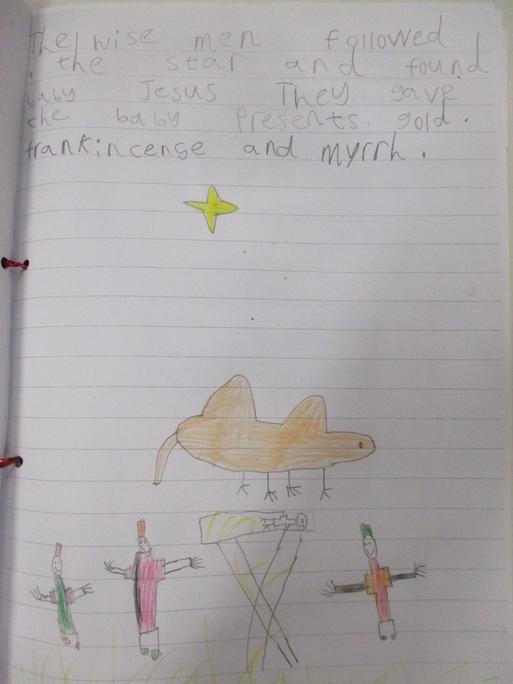 The wise men followed
the star and found
baby Jesus They gave
the baby presents. gold.
frankincense and myrrh.